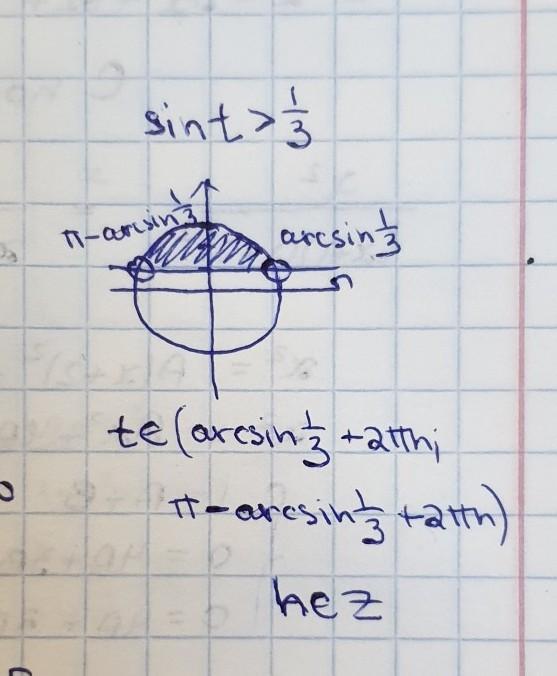 sin t > 1/3
π - arcsin 1/3
arcsin 1/3
t∈(arcsin 1/3 + 2πn;
π - arcsin 1/3 + 2πn)
n∈Z